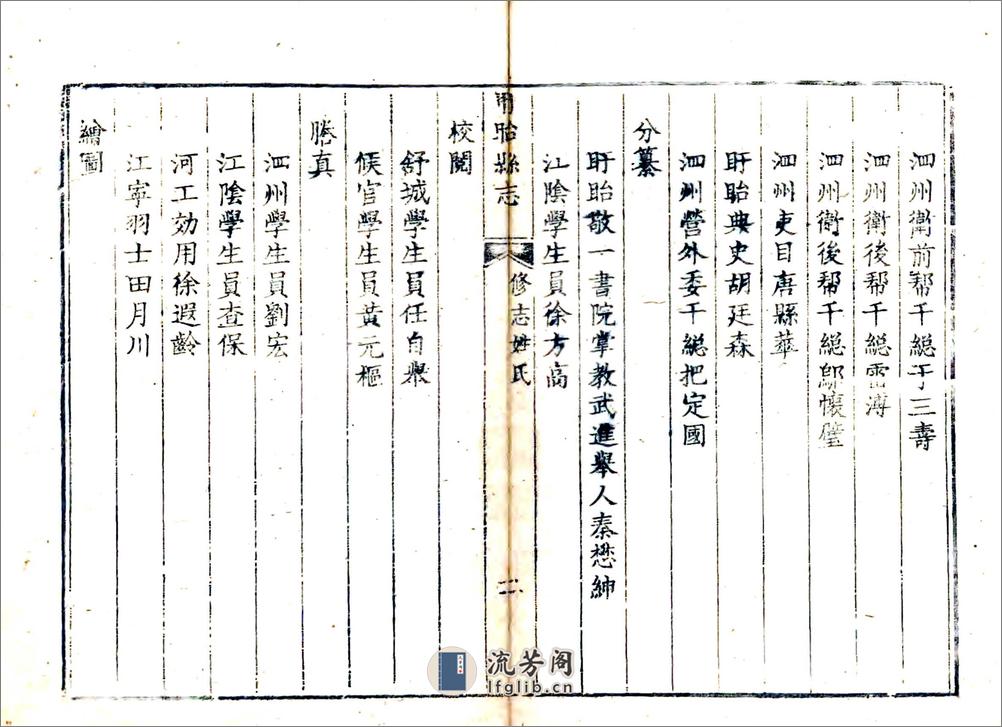 泗州衛前幇千總于三壽
泗州衛後幇千總雷溥
泗州衛後幇千總鄔懷璧
泗州吏目唐縣華
盱眙典史胡廷森
泗州營外委千總把定國
分纂
盱眙敬一書院掌教武進舉人秦懋紳
江陰學生員徐方高
盱眙縣志
修志姓氏
二
校閱
舒城學生員任自
候官學生員黃元樞
謄真
泗州學生員劉宏
江陰學生員查保
河工効用徐遐齡
江寧羽士田月川
繪圖
流芳阁
lfglib.cn